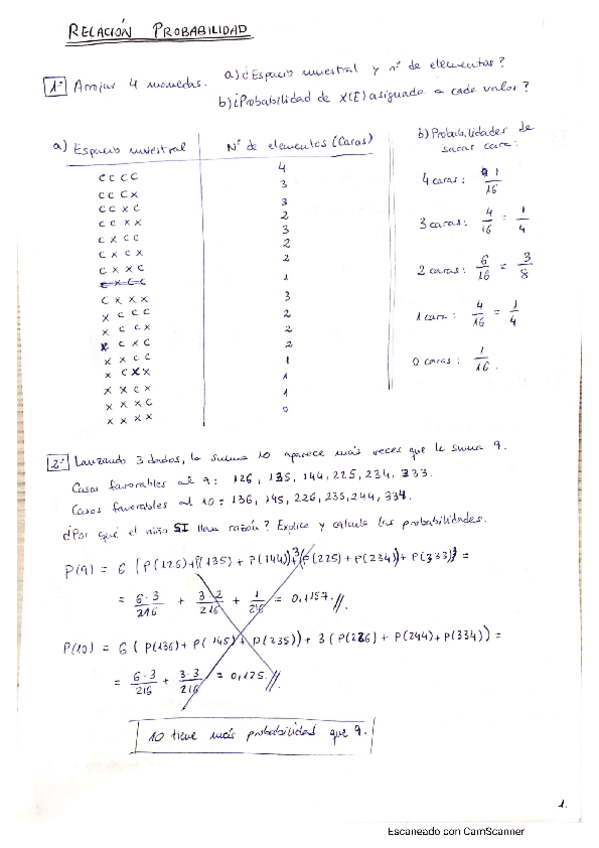 RELACIÓN PROBABILIDAD
1º Arrojar 4 monedas. a) ¿Espacio muestral y nº de elementos?
b) ¿Probabilidad de X(E) asignado a cada valor?
a) Espacio muestral
Nº de elementos (Caras)
C C C C 4
C C C X 3
C C X C 3
C C X X 2
C X C C 3
C X C X 2
C X X C 2
C X X X 1
X C C C 3
X C C X 2
X C X C 2
X X C C 2
X C X X 1
X X C X 1
X X X C 1
X X X X 0
b) Probabilidades de
sacar cara:
4 caras: 1/16
3 caras: 4/16 = 1/4
2 caras: 6/16 = 3/8
1 cara: 4/16 = 1/4
0 caras: 1/16.
2º Lanzando 3 dados, la suma 10 aparece más veces que la suma 9.
Casos favorables al 9: 126, 135, 144, 225, 234, 333.
Casos favorables al 10: 136, 145, 226, 235, 244, 334.
¿Por qué el niño SI lleva razón? Explica y calcula las probabilidades.
P(9) = 6 (P(126)+(135) + P(144))+3(P(225) + P(234))+ P(333)) =
= 6·3/216 + 3·2/216 + 1/216 = 0,1157 //.
P(10) = 6 (P(136)+P(145)+P(235)) + 3 (P(226) + P(244)+P(334)) =
= 6·3/216 + 3·3/216 = 0,125 //.
10 tiene más probabilidad que 9.
1.
Escaneado con CamScanner